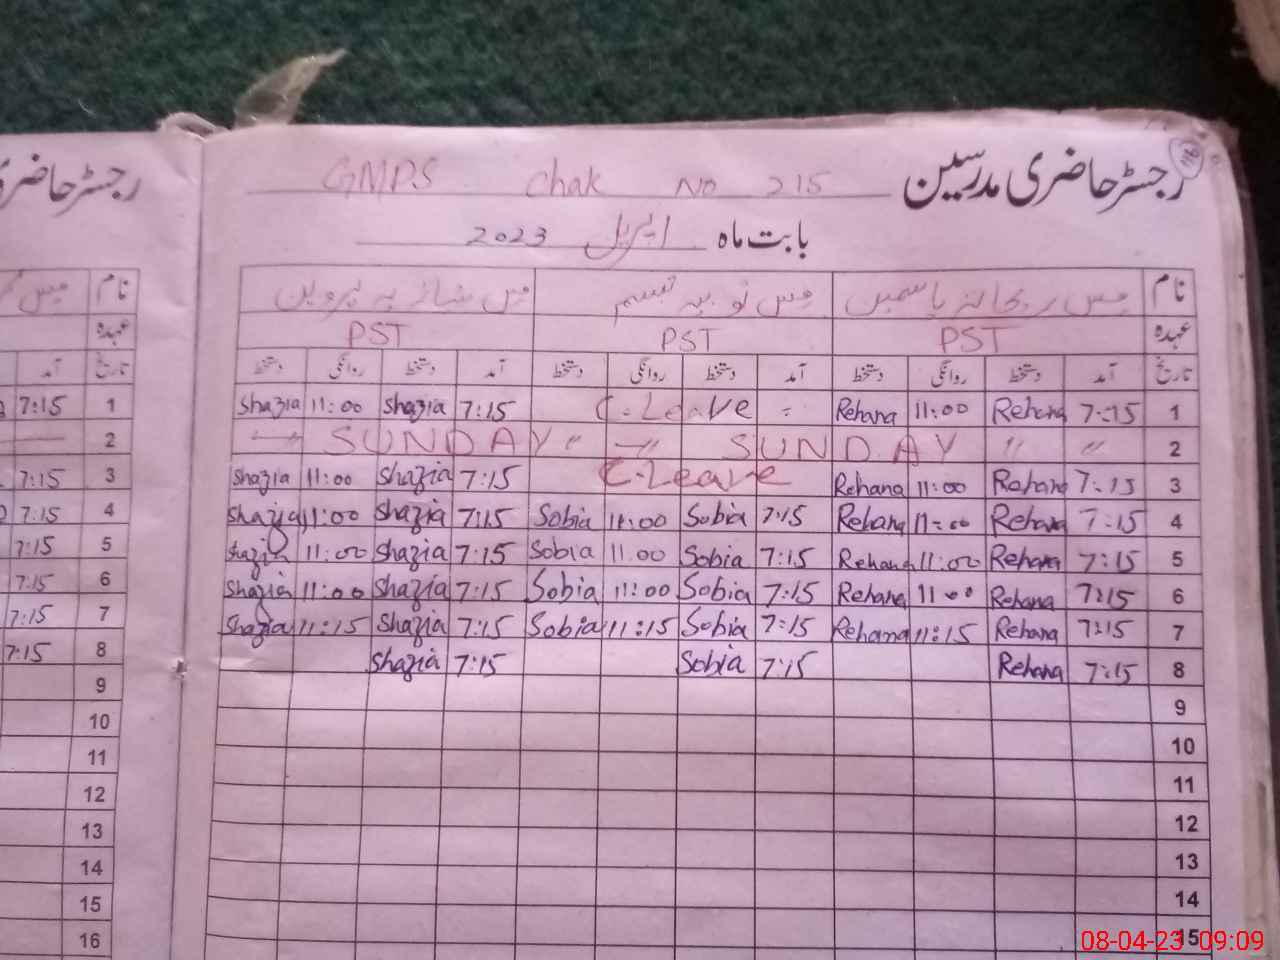 رجسٹر حاضری مدرسین GMPS Chak No 215
بابت ماہ اپریل 2023
نام مس ریحانہ یاسمین مس ثوبیہ تبسم مس شازیہ پروین
عہدہ PST PST PST
تاریخ آمد دستخط روانگی دستخط آمد دستخط روانگی دستخط آمد دستخط روانگی دستخط
1 7:15 Rehana 11:00 Rehana C.Leave 7:15 Shazia 11:00 Shazia
2 〃 〃 SUNDAY 〃 〃 SUNDAY 〃
3 7:15 Rehana 11:00 Rehana C.Leave 7:15 Shazia 11:00 Shazia
4 7:15 Rehana 11:00 Rehana 7:15 Sobia 11:00 Sobia 7:15 Shazia 11:00 Shazia
5 7:15 Rehana 11:00 Rehana 7:15 Sobia 11.00 Sobia 7:15 Shazia 11:00 Shazia
6 7:15 Rehana 11:00 Rehana 7:15 Sobia 11:00 Sobia 7:15 Shazia 11:00 Shazia
7 7:15 Rehana 11:15 Rehana 7:15 Sobia 11:15 Sobia 7:15 Shazia 11:15 Shazia
8 7:15 Rehana 7:15 Sobia 7:15 Shazia
9
10
11
12
13
14
15
رجسٹر حاضری
نام مس
عہدہ
تاریخ آمد
1 7:15
2
3 7:15
4 7:15
5 7:15
6 7:15
7 7:15
8 7:15
9
10
11
12
13
14
15
16
08-04-23 09:09